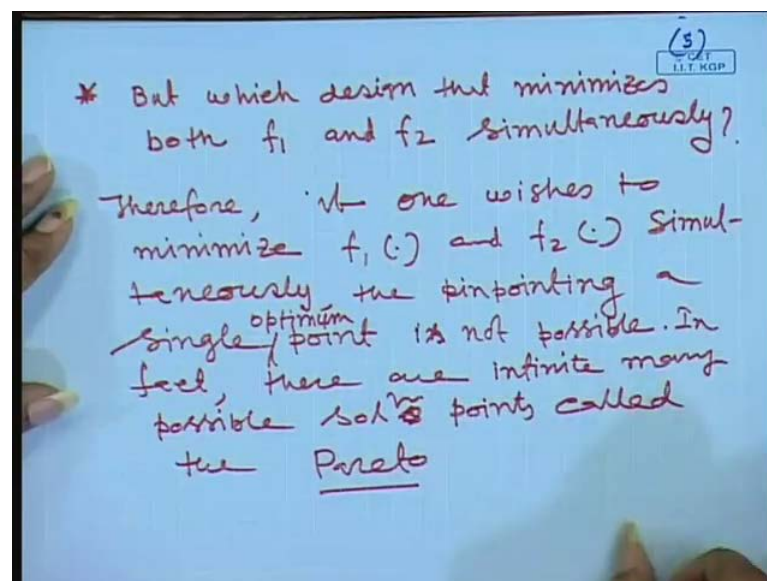 (5)
CET
I.I.T. KGP
* But which design that minimizes
both f₁ and f₂ simultaneously?
Therefore, if one wishes to
minimize f₁(·) and f₂(·) simul-
teneously the pinpointing a
single optimum point is not possible. In
fact, there are infinite many
possible solⁿs points called
the Pareto